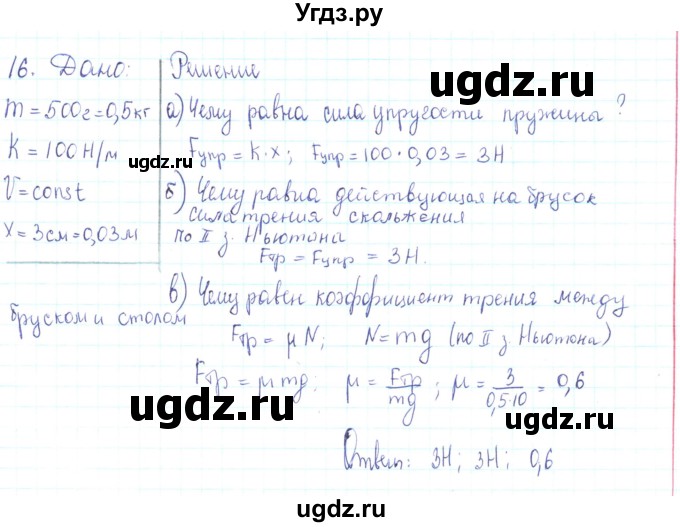 Угдз.ру
16. Дано:
m = 500г = 0,5кг
K = 100 Н/м
V = const
x = 3см = 0,03м
Решение
а) Чему равна сила упругости пружины?
Fупр = k · x; Fупр = 100 · 0,03 = 3Н
б) Чему равна действующая на брусок
сила трения скольжения
по II з. Ньютона
Fтр = Fупр = 3Н.
в) Чему равен коэффициент трения между
бруском и столом
Fтр = μ N; N = mg (по II з Ньютона)
Fтр = μ mg; μ = Fтр/mg; μ = 3/0,5·10 = 0,6
Ответ: 3Н; 3Н; 0,6
ugdz.ru
ugdz.ru
ugdz.ru
ugdz.ru
ugdz.ru
ugdz.ru
ugdz.ru